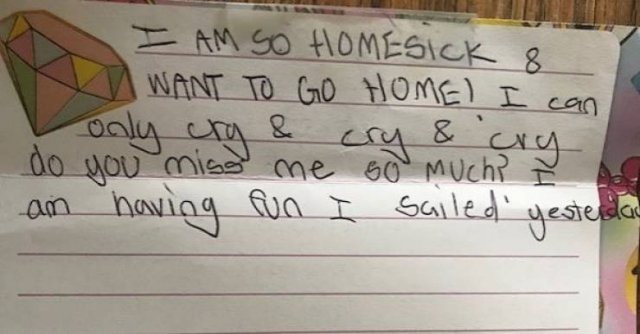 I AM SO HOMESICK &
WANT TO GO HOME! I can
only cry & cry & cry
do you miss me so much? I
am having fun I sailed yesterday